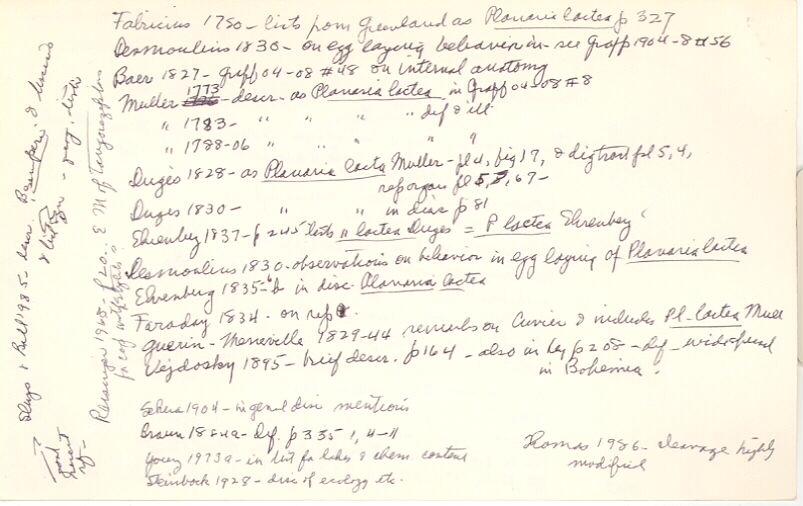 Fabricius 1780 - lists from Greenland as Planaria lactea p 327
Desmoulins 1830 - on egg laying behavior in - see Graff 1904-8 #56
Baer 1827 - Graff 04-08 #48 on internal anatomy
Muller 1773 - descr. as Planaria lactea in Graff 04-08 #8
" 1783 - " " " " def & ill
" 1788-06 " " " " "
Dugés 1828 - as Planaria lacta Muller - pl 4, fig 17, & dig tract pl 5, 4,
rep organ pl 5, 67 -
Duges 1830 - " " in disc p 81
Ehrenberg 1837 - p 245 lists " lactea Duges = P lactea Ehrenberg
Desmoulins 1830 - observations on behavior in egg laying of Planaria lactea
Ehrenberg 1835 - in disc. Planaria lactea
Faraday 1834 - on rep
Guerin-Meneville 1829-44 remarks on Cuvier & includes Pl. lactea Mull
Vejdosky 1895 - brief descr. p 164 - also in key p 208 - def - widespread
in Bohemia.
1904 - in general disc mentions
Braun 1884a - Def. p 335
Young 1973a - in list for lakes & chem content
Steinbock 1928 - disc of ecology etc.
Thomas 1986 - cleavage highly
modified
Sluys & Ball 1985 - descr.
Reisinger 1968 - p 20 . . E M of